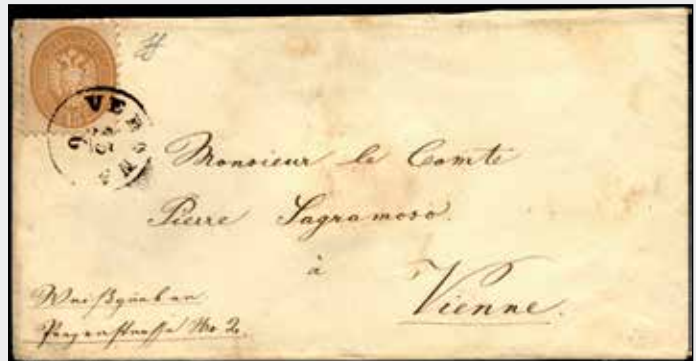 VERONA
Monsieur le Comte
Pierre Sagramoso.
à
Vienne.
Weißgärber
No 2.